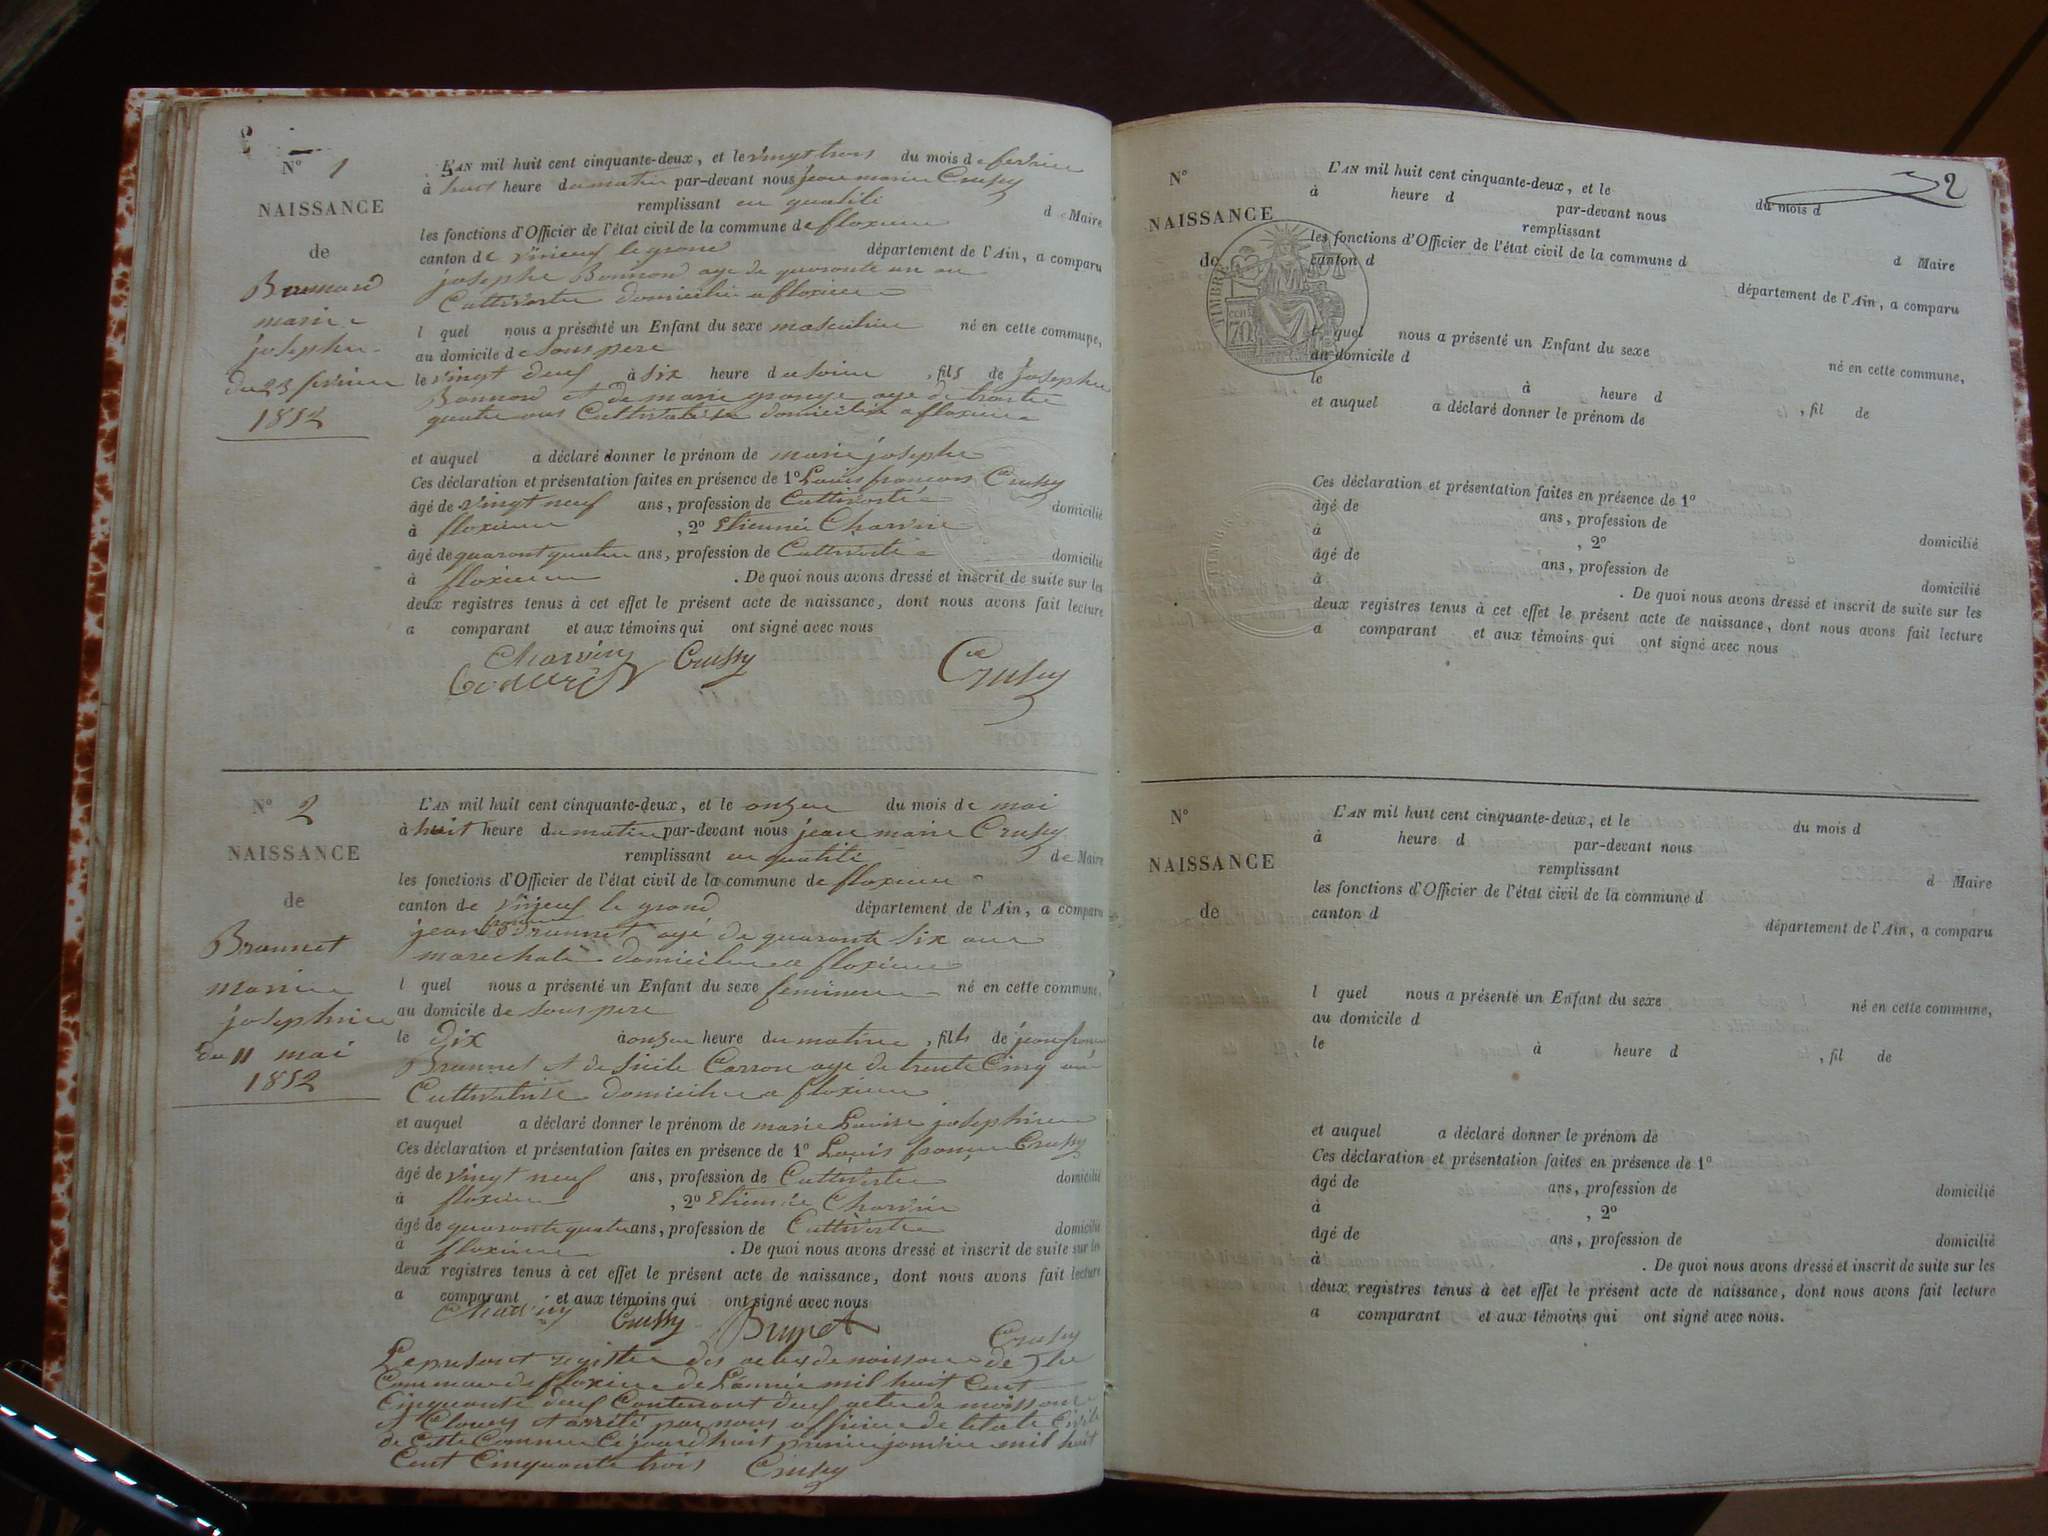 N° 1
NAISSANCE
de
marie
josephe
du 23 fevrier
1852
L'AN mil huit cent cinquante-deux, et le vingt trois du mois de fevrier
à huit heure du matin par-devant nous jean marie Crussy
remplissant en qualité de Maire
les fonctions d'Officier de l'état civil de la commune de floxieu
canton de virieux le grand département de l'Ain, a comparu
josephe Bonnard age de quarante un an
Cultivateur domicilie a floxieu
l quel nous a présenté un Enfant du sexe masculin né en cette commune,
au domicile de sous pere
le vingt deux à six heure du soire, fils de josephe
Bonnard et de marie grange age de trante
quatre ans Cultivatrice domicilié a floxieu
et auquel a déclaré donner le prénom de marie josephe
Ces déclaration et présentation faites en présence de 1° Louis francois Crussy
âgé de vingt neuf ans, profession de Cultivateur domicilié
à floxieu, 2° Etienne Charvin
âgé de quarant quatre ans, profession de Cultivateur domicilié
à floxieu. De quoi nous avons dressé et inscrit de suite sur les
deux registres tenus à cet effet le présent acte de naissance, dont nous avons fait lecture
a comparant et aux témoins qui ont signé avec nous
Charvin Crussy Crussy
N° 2
NAISSANCE
de
Brunnet
marie
josephine
du 11 mai
1852
L'AN mil huit cent cinquante-deux, et le onze du mois de mai
à huit heure du matin par-devant nous jean marie Crussy
remplissant en qualité de Maire
les fonctions d'Officier de l'état civil de la commune de floxieu
canton de virieux le grand département de l'Ain, a comparu
jean Brunnet agé de quarante six ans
marechale domicilie a floxieu
l quel nous a présenté un Enfant du sexe feminin né en cette commune,
au domicile de sous pere
le dix à onze heure du matin, fille de jean
Brunnet et de Sicile Carron age de trente Cinq
Cultivatrise domicilie a floxieu
et auquel a déclaré donner le prénom de marie Louise josephine
Ces déclaration et présentation faites en présence de 1° Louis Crussy
âgé de vingt neuf ans, profession de Cultivateur domicilié
à floxieu, 2° Etienne Charvin
âgé de quarante quatre ans, profession de Cultivateur domicilié
à floxieu. De quoi nous avons dressé et inscrit de suite sur les
deux registres tenus à cet effet le présent acte de naissance, dont nous avons fait lecture
a comparant et aux témoins qui ont signé avec nous
Charvin Crussy Brunet Crussy
Le present registre des actes de naissance de
Commune de floxieu de L'année mil huit Cent
Cinquante deux Contenant deux actes de naissance
et arrêté par nous officier de letate Civile
de Cette Commune Cejourdhuit premier janvier mil huit
Cent Cinquante trois Crussy
2
N°
NAISSANCE
de
TIMBRE
70
L'AN mil huit cent cinquante-deux, et le du mois d
à heure d par-devant nous
remplissant d Maire
les fonctions d'Officier de l'état civil de la commune d
canton d département de l'Ain, a comparu
l quel nous a présenté un Enfant du sexe né en cette commune,
au domicile d
le à heure d , fil de
et auquel a déclaré donner le prénom de
Ces déclaration et présentation faites en présence de 1°
âgé de ans, profession de domicilié
à , 2°
âgé de ans, profession de domicilié
à . De quoi nous avons dressé et inscrit de suite sur les
deux registres tenus à cet effet le présent acte de naissance, dont nous avons fait lecture
a comparant et aux témoins qui ont signé avec nous
N°
NAISSANCE
de
L'AN mil huit cent cinquante-deux, et le du mois d
à heure d par-devant nous
remplissant d Maire
les fonctions d'Officier de l'état civil de la commune d
canton d département de l'Ain, a comparu
l quel nous a présenté un Enfant du sexe né en cette commune,
au domicile d
le à heure d , fil de
et auquel a déclaré donner le prénom de
Ces déclaration et présentation faites en présence de 1°
âgé de ans, profession de domicilié
à , 2°
âgé de ans, profession de domicilié
à . De quoi nous avons dressé et inscrit de suite sur les
deux registres tenus à cet effet le présent acte de naissance, dont nous avons fait lecture
a comparant et aux témoins qui ont signé avec nous.